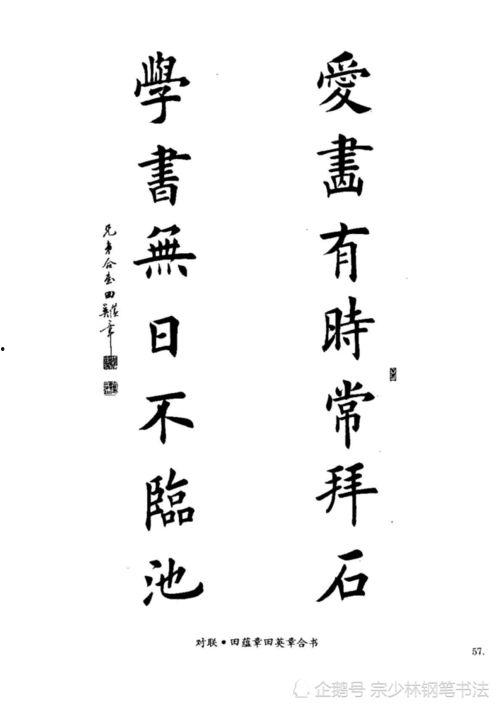 愛畫有時常拜石
學書無日不臨池
兄弟合書田蘊英章
对联•田蕴章田英章合书
57.
企鹅号 宗少林钢笔书法